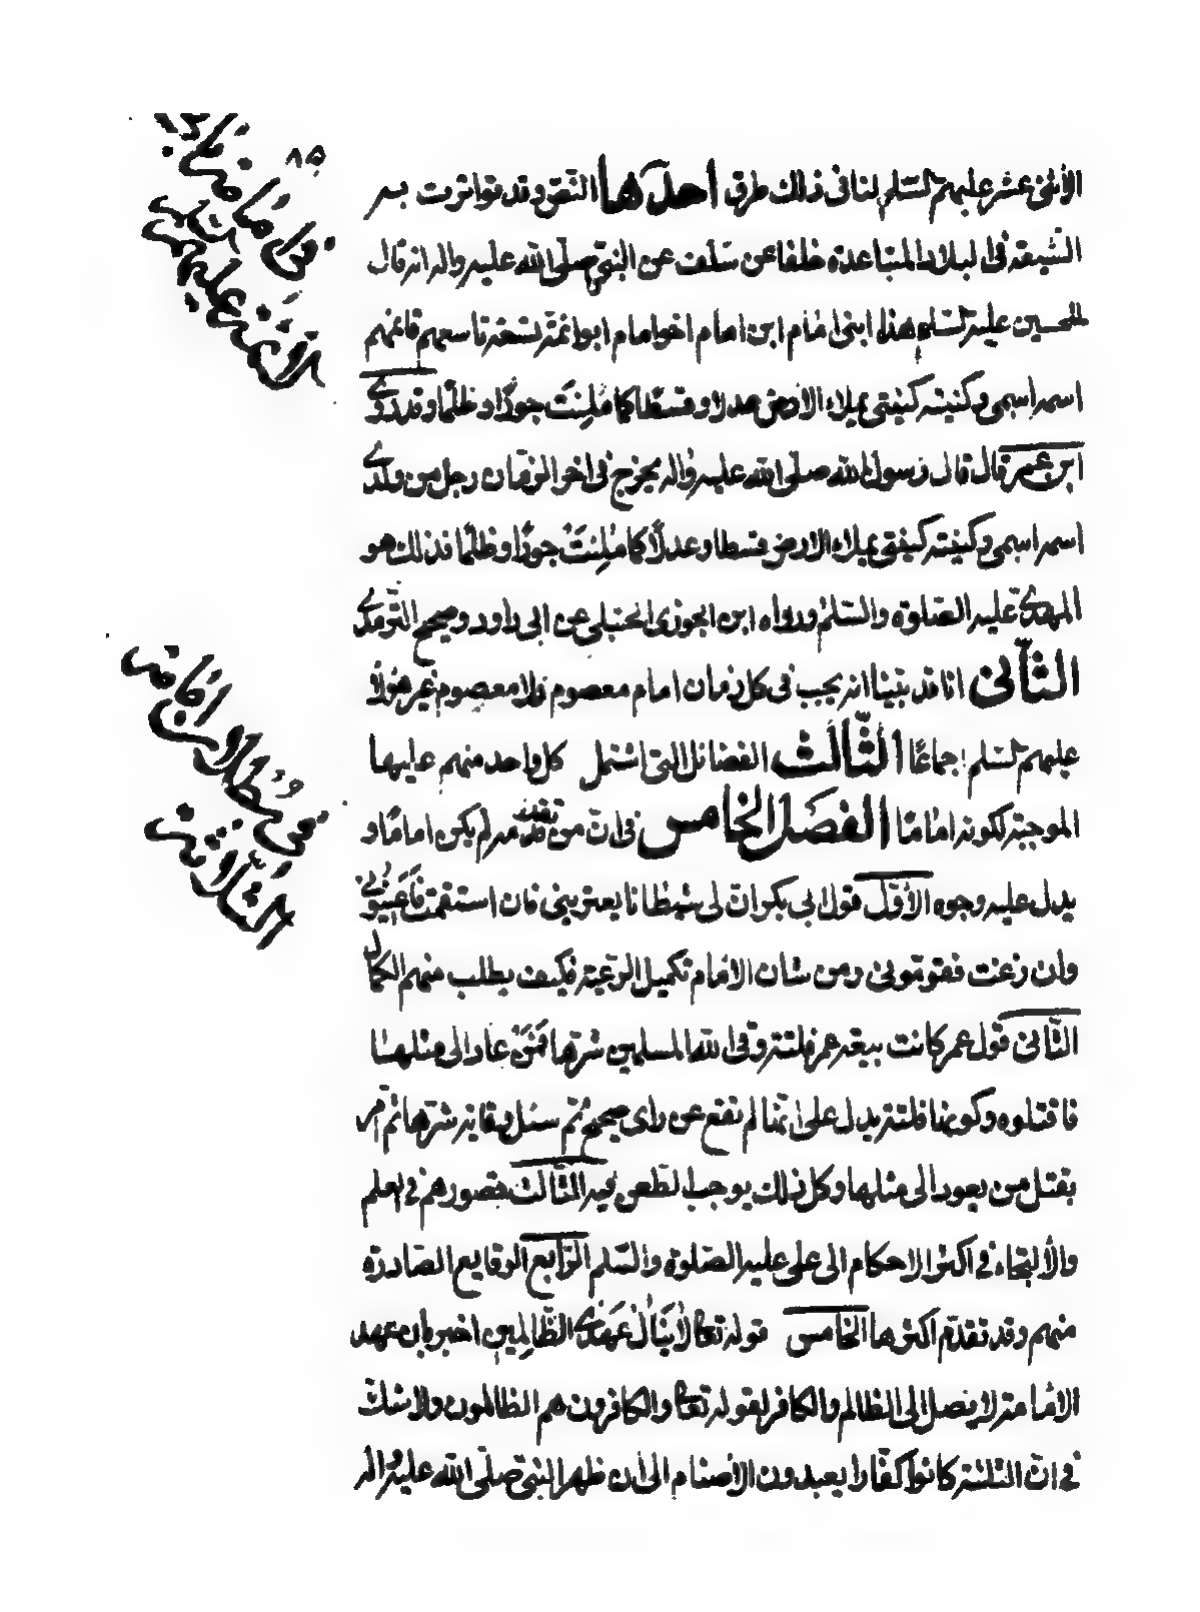 ٨٥
الأثنى عشر عليهم السّلم لنا فى ذلك طرق احدها النّصّ وقد تواترت به
الشّيعة فى البلاد المتباعدة خلفا عن سلف عن النّبىّ صلّى الله عليه واله انه قال
للحسين عليه السّلم هذا ابنى امام ابن امام اخو امام ابو ائمّة تسعة تاسعهم قائمهم
اسمه اسمى وكنيته كنيتى يملاء الارض عدلا وقسطا كما مُلِئَت جورًا وظلمًا وقد روى
ابن عمر قال قال رسول الله صلّى الله عليه واله يخرج فى اخر الزمان رجل من ولدى
اسمه اسمى وكنيته كنيتى يملاء الارض قسطا وعدلًا كما مُلِئَتْ جورًا وظلمًا فذلك هو
المهدىّ عليه الصّلوة والسّلم ورواه ابن الجوزى الحنبلى عن ابى داود وصحيح التّرمذى
الثّانى انا قد بيّنا انه يجب فى كل زمان امام معصوم ولا معصوم غير هؤلاء
عليهم السّلم اجماعًا الثّالث الفضائل التى اشتمل كل واحد منهم عليها
الموجبة لكونه امامًا الفصل الخامس فى انّ من تقدمه لم يكن امامًا و
يدل عليه وجوه الأوّل قول ابى بكر انّ لى شيطانا يعترينى فان استقمت فَاعينُونى
وان زغت فقوّمونى ومن شان الامام تكميل الرّعية فكيف يطلب منهم الكمال
الثّانى قول عمر كانت بيعة ابى بكر فلتة وقى الله المسلمين شرّها فَمَنْ عاد الى مثلها
فاقتلوه وكونها فلتة يدل على انّها لم تقع عن راى صحيح ثمّ سئل وقاية شرّها ثم امر
بقتل من يعود الى مثلها وكل ذلك يوجب الطّعن فيه الثّالث قصورهم فى العلم
والألتجاء فى اكثر الاحكام الى على عليه الصّلوة والسّلم الرّابع الوقايع الصّادرة
منهم وقد تقدّم اكثرها الخامس قوله تعالى لا يَنَالُ عَهْدِى الظّالِمين اخبر بان عهد
الامامة لا يصل الى الظالم والكافر لقوله تعالى والكافرون هم الظالمون ولا شكّ
فى انّ الثلثة كانوا كفّارا يعبدون الاصنام الى ان ظهر النّبىّ صلّى الله عليه واله
فى امامة باقى
الائمة عليهم
فى بُطْلَان امامة
الثّلاثة